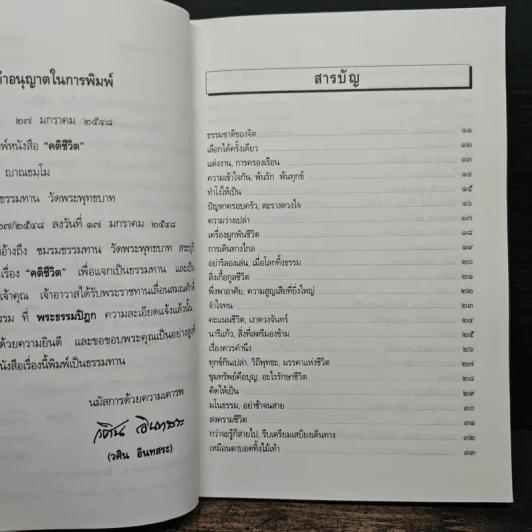 อนุญาตในการพิมพ์
๒๗ มกราคม ๒๕๔๘
พ์หนังสือ "คติชีวิต"
ญาณธมฺโม
ธรรมทาน วัดพระพุทธบาท
๗/๒๕๔๘ ลงวันที่ ๑๗ มกราคม ๒๕๔๘
อ้างถึง ชมรมธรรมทาน วัดพระพุทธบาท สระบุรี
เรื่อง "คติชีวิต" เพื่อแจกเป็นธรรมทาน และเป็น
เจ้าคุณ เจ้าอาวาสได้รับพระราชทานเลื่อนสมณศักดิ์
รรม ที่ พระธรรมปิฎก ความละเอียดแจ้งแล้วนั้น
ด้วยความยินดี และขอขอบพระคุณเป็นอย่างสูงที่
หนังสือเรื่องนี้พิมพ์เป็นธรรมทาน
นมัสการด้วยความเคารพ
วศิน อินทสระ
(วศิน อินทสระ)
สารบัญ
ธรรมชาติของจิต ๑๑
เลือกได้ครั้งเดียว ๑๒
แต่งงาน, การครองเรือน ๑๓
ความเข้าใจกัน, พ้นรัก พ้นทุกข์ ๑๔
ทำไงให้เป็น ๑๕
ปัญหาครอบครัว, ตะรางดวงใจ ๑๖
ความว่างเปล่า ๑๗
เครื่องผูกพันชีวิต ๑๘
การเดินทางไกล ๑๙
อย่ารีลองเล่น, เมื่อโลกทิ้งธรรม ๒๐
สิ่งเกื้อกูลชีวิต ๒๑
พึ่งพาอาศัย, ความสูญเสียที่ยิ่งใหญ่ ๒๒
จำใจทน ๒๓
คะแนนชีวิต, เงาดวงจันทร์ ๒๔
นารีแก้ว, สิ่งที่สตรีมองข้าม ๒๕
เรื่องควรคำนึง ๒๖
ทุกข์กินเปล่า, วิถีพุทธะ, มรรคาแห่งชีวิต ๒๗
ขุมทรัพย์คือบุญ, อะไรรักษาชีวิต ๒๘
คิดให้เป็น ๒๙
มโนธรรม, อย่าช้าจนสาย ๓๐
สงครามชีวิต ๓๑
กว่าจะรู้ก็สายไป, รีบเตรียมเสบียงเดินทาง ๓๒
เหมือนตาบอดทิ้งไม้เท้า ๓๓